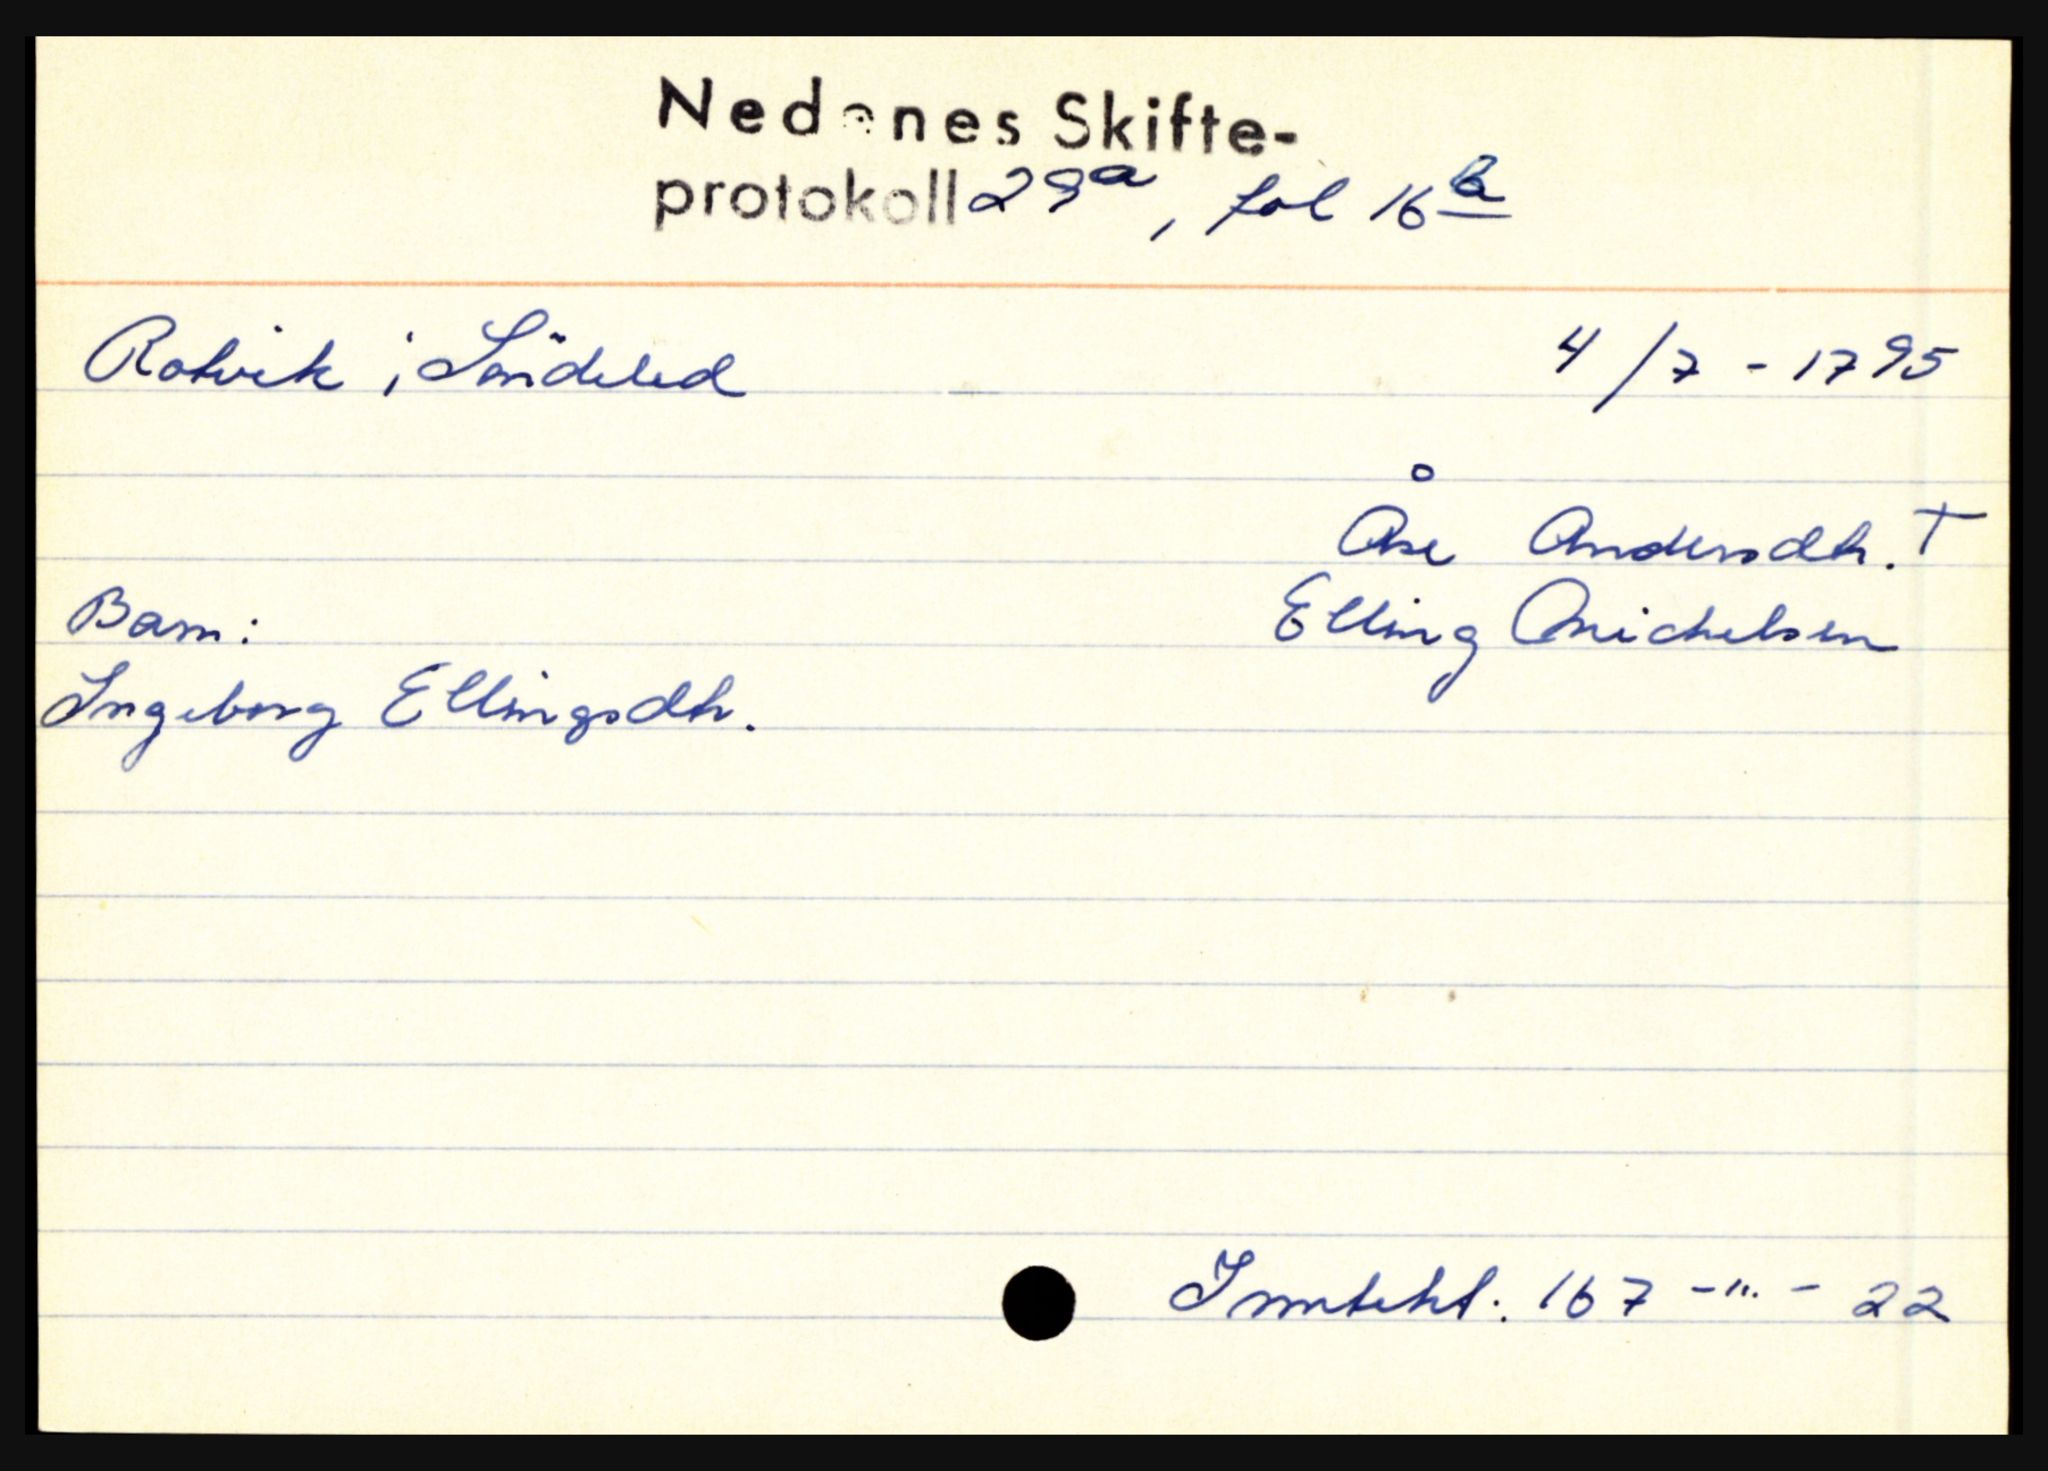 Nedenes Skifte-
protokoll 29a, fol 16b
Rotvik i Söndeled 4/7 - 1795
Åse Andersdtr. †
Barn: Elling Michelsen
Ingeborg Ellingsdtr.
Inntekt. 167 - " - 22